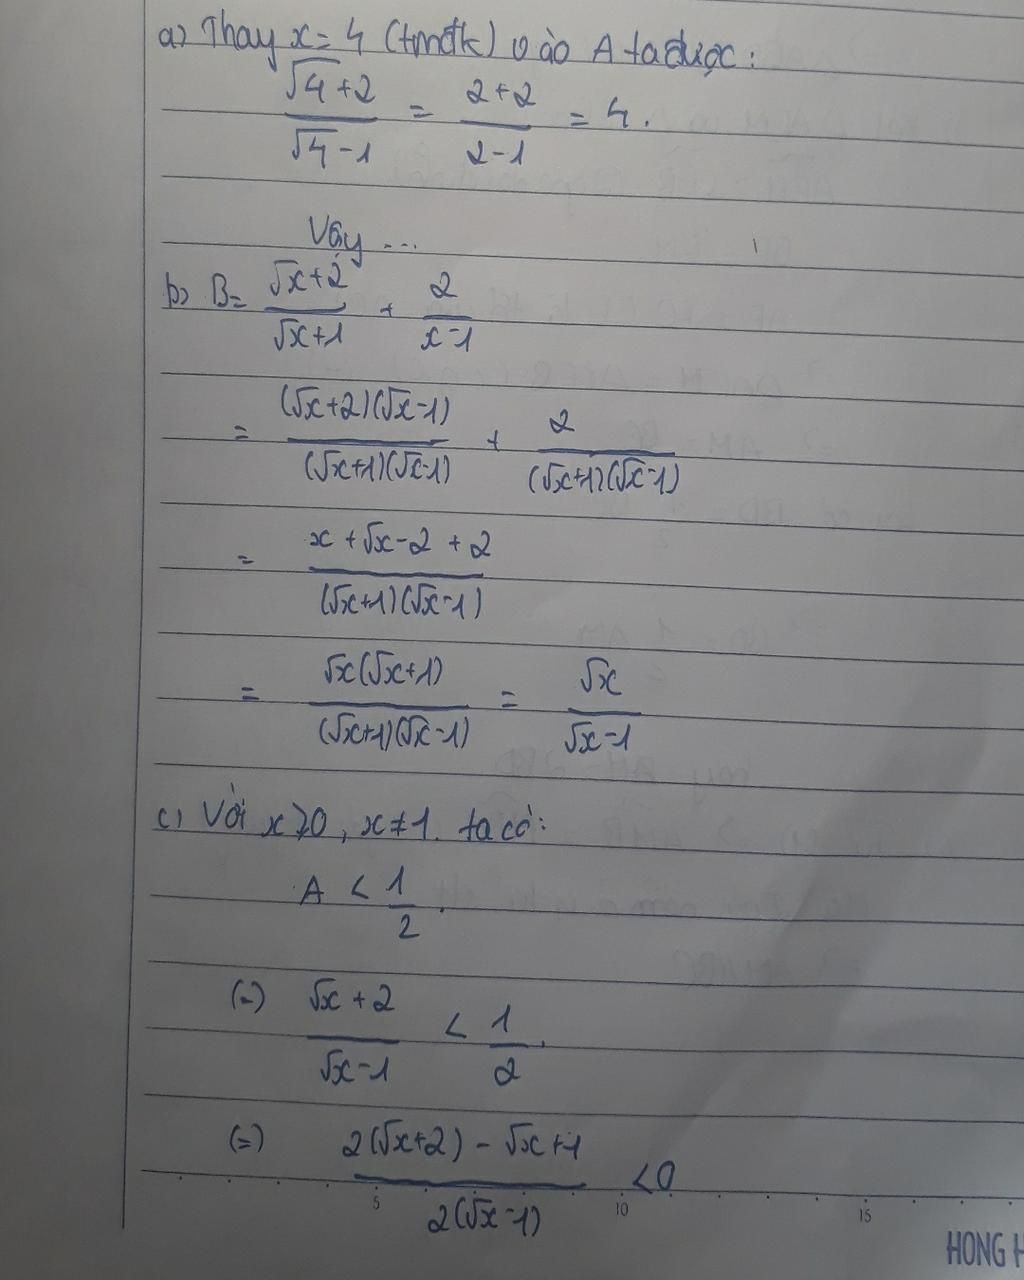 a) Thay x = 4 (tmđk) vào A ta được:
(√4+2)/(√4-1) = (2+2)/(2-1) = 4.
Vậy ...
b) B= (√x+2)/(√x+1) + 2/(x-1)
= ((√x+2)(√x-1))/((√x+1)(√x-1)) + 2/((√x+1)(√x-1))
= (x+√x-2+2)/((√x+1)(√x-1))
= (√x(√x+1))/((√x+1)(√x-1)) = √x/(√x-1)
c) Với x≥0, x≠1 ta có:
A < 1/2.
(=) (√x+2)/(√x-1) < 1/2.
(=) (2(√x+2) - √x+1)/(2(√x-1)) <0
5 10 15
HONG H